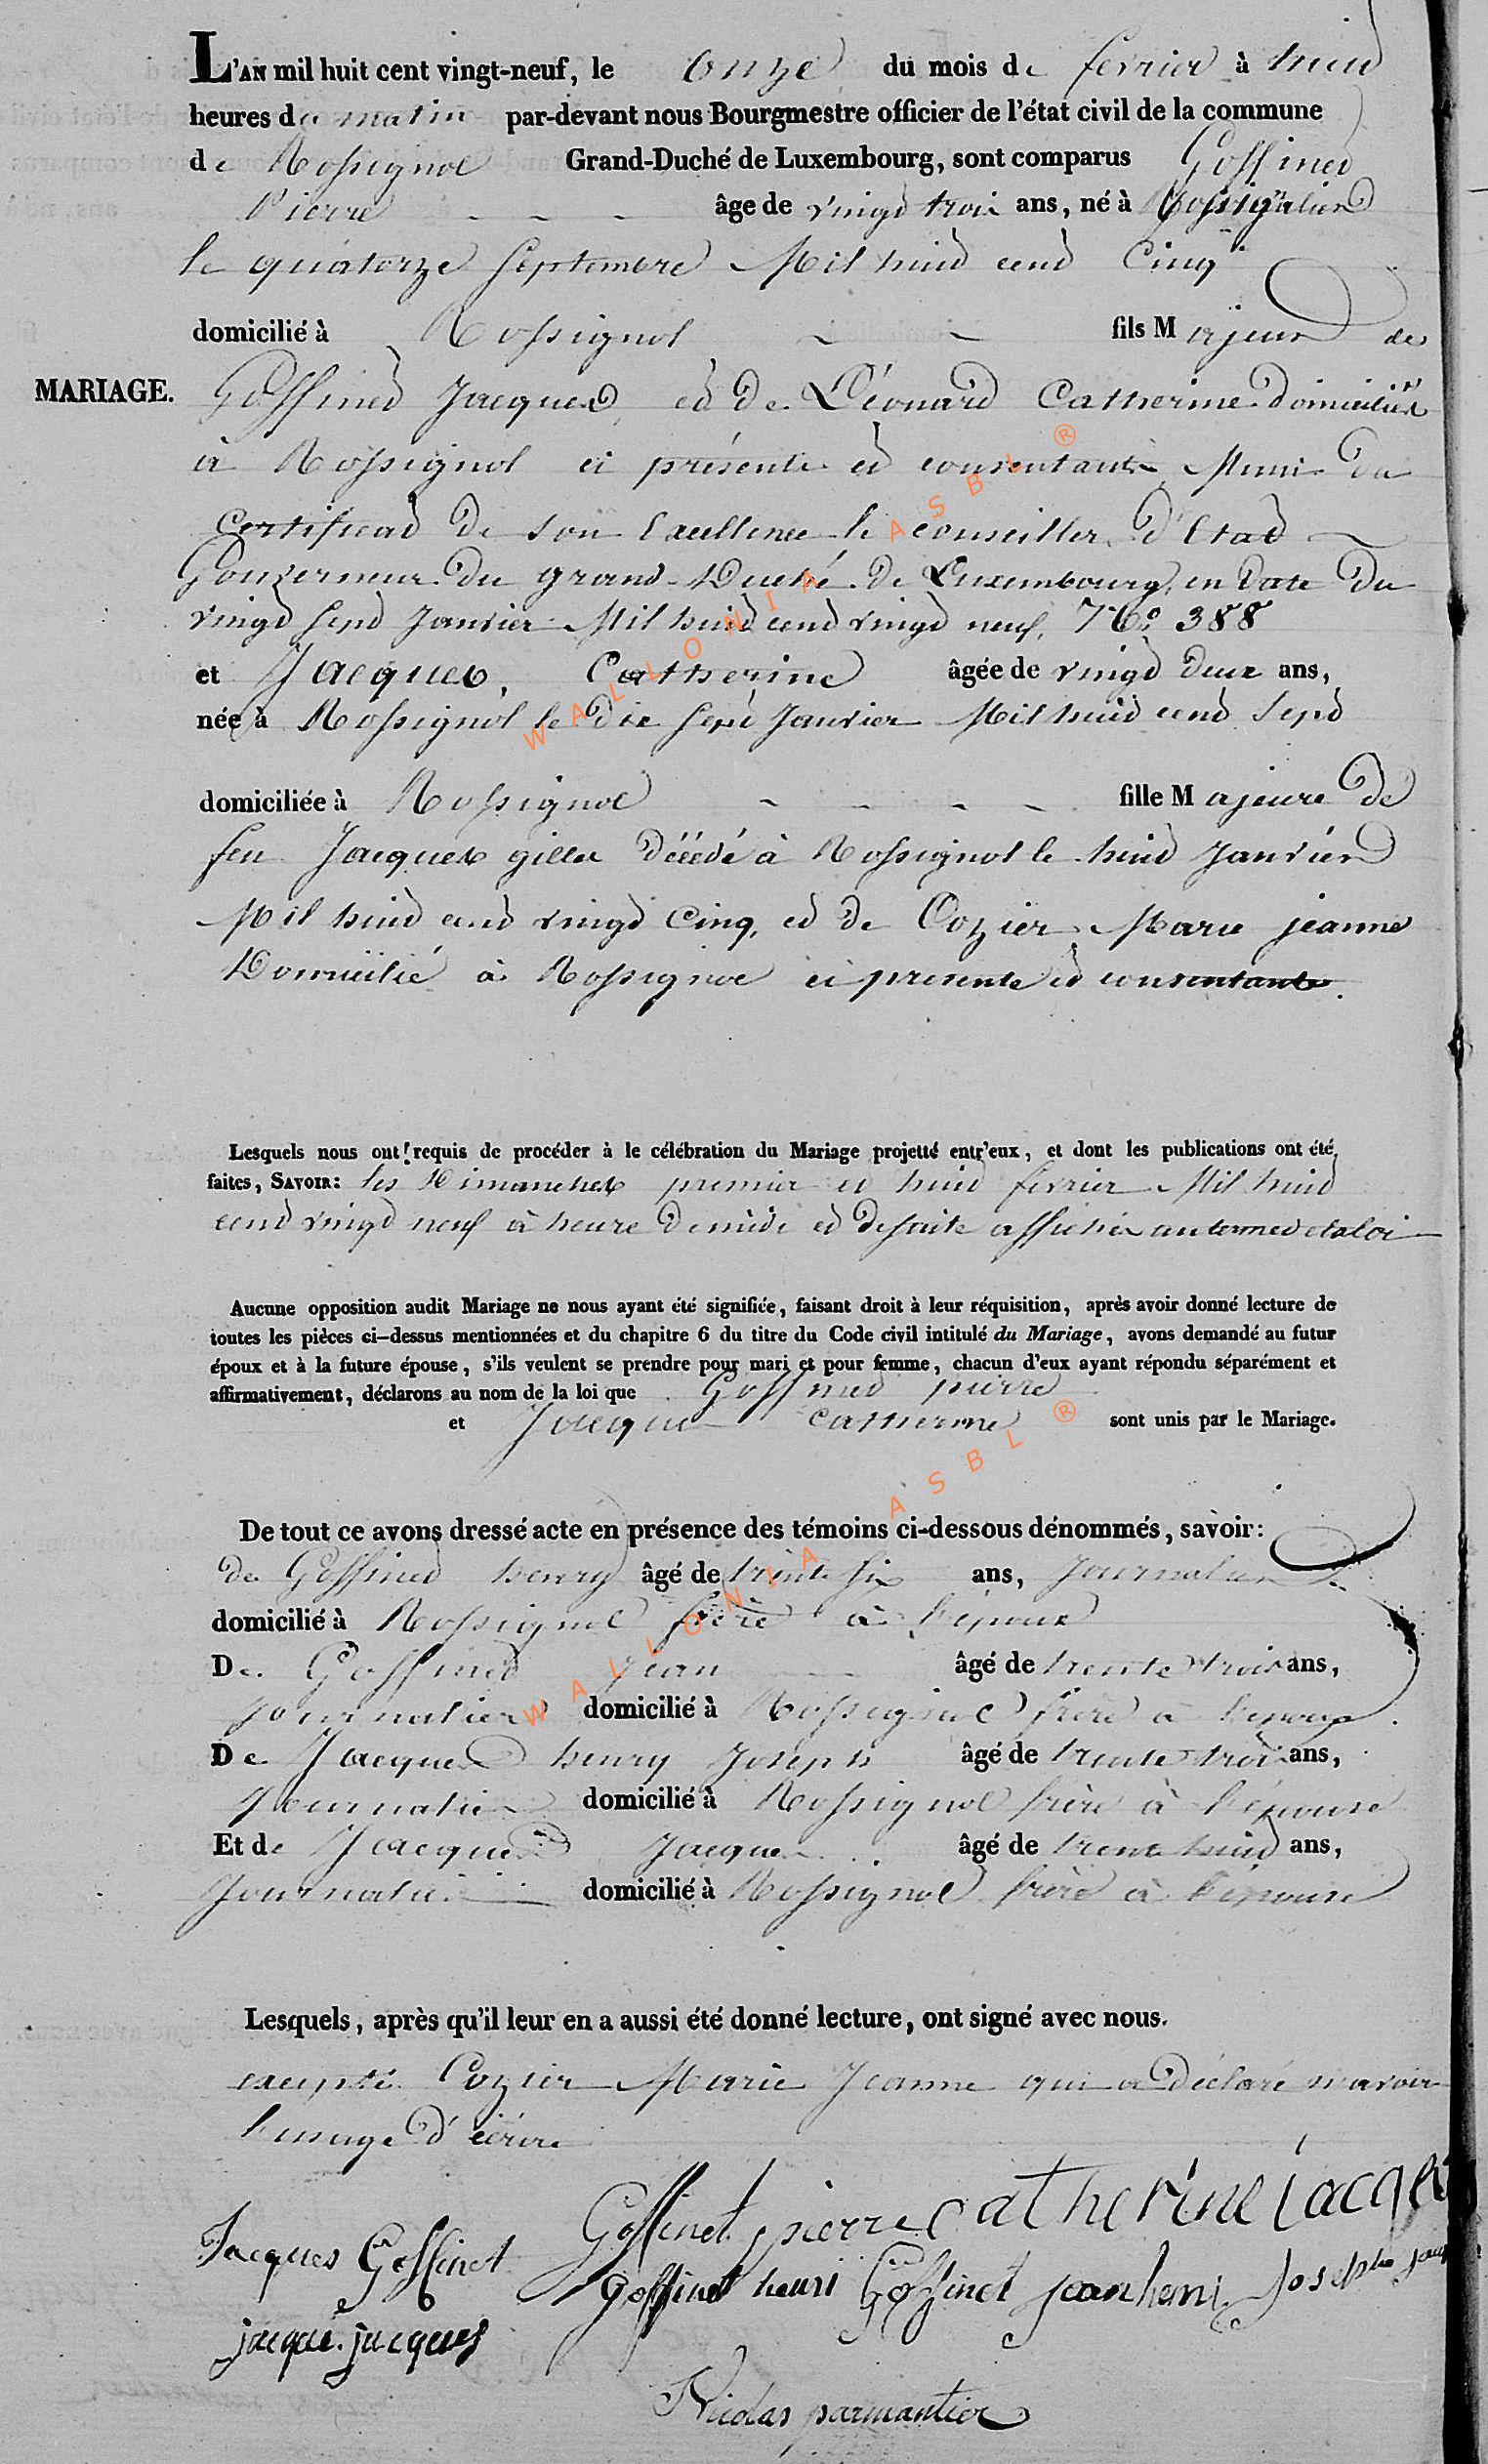 L'AN mil huit cent vingt-neuf, le Onze du mois de fevrier à huid
heures du matin par-devant nous Bourgmestre officier de l'état civil de la commune
de Rossignol Grand-Duché de Luxembourg, sont comparus Goffined
Pierre âge de vingd trois ans, né à
le quatorze Septembre Mil huid cend Cinq
domicilié à Rossignol fils Majeur de
MARIAGE.
Goffined Jacques ed de Léonard Catherine domiciliés
à Rossignol ci présente ed consentants Muni du
Certificad de Son Excellence le conseiller d'Etad
Gouverneur du grand-Duché de Luxembourg, en date du
vingd sepd Janvier Mil huid cend vingd neuf, No. 388
et Jacques, Catherine âgée de vingd deux ans,
née à Rossignol le dix sepd Janvier Mil huid cend Sepd
domiciliée à Rossignol fille Majeure de
feu Jacques gilles décédé à Rossignol le huid Janvier
Mil huid cend vingd Cinq, ed de Cozier Marie jeanne
Domicilié à Rossignol ci presente ed consentante.
Lesquels nous ont requis de procéder à le célébration du Mariage projetté entr'eux, et dont les publications ont été
faites, SAVOIR: les Dimanches premier ed huid fevrier Mil huid
cend vingd neuf à heure de midi ed de suite affichés
Aucune opposition audit Mariage ne nous ayant été signifiée, faisant droit à leur réquisition, après avoir donné lecture de
toutes les pièces ci-dessus mentionnées et du chapitre 6 du titre du Code civil intitulé du Mariage, avons demandé au futur
époux et à la future épouse, s'ils veulent se prendre pour mari et pour femme, chacun d'eux ayant répondu séparément et
affirmativement, déclarons au nom de la loi que Goffined pierre
et Jacques catherine sont unis par le Mariage.
De tout ce avons dressé acte en présence des témoins ci-dessous dénommés, savoir:
de Goffined henry âgé de trente six ans, Journalier
domicilié à Rossignol frère à l'époux
De Goffined Jean âgé de trente trois ans,
Journalier domicilié à Rossignol frère à l'époux.
De Jacques henry Joseph âgé de trente trois ans,
Journalier domicilié à Rossignol frère à l'épouse
Et de Jacques Jacques âgé de trente huid ans,
Journalier domicilié à Rossignol frère à l'épouse
Lesquels, après qu'il leur en a aussi été donné lecture, ont signé avec nous.
excepté Cozier Marie Jeanne qui a déclaré n'avoir
l'usage d'écrire
Goffinet pierre catherine jacque
Jacques Goffinet
Goffinet henri Goffinet jean henri Joseph
jacque. jacques
Nicolas parmantier
WALLONIA ASBL ®
WALLONIA ASBL ®